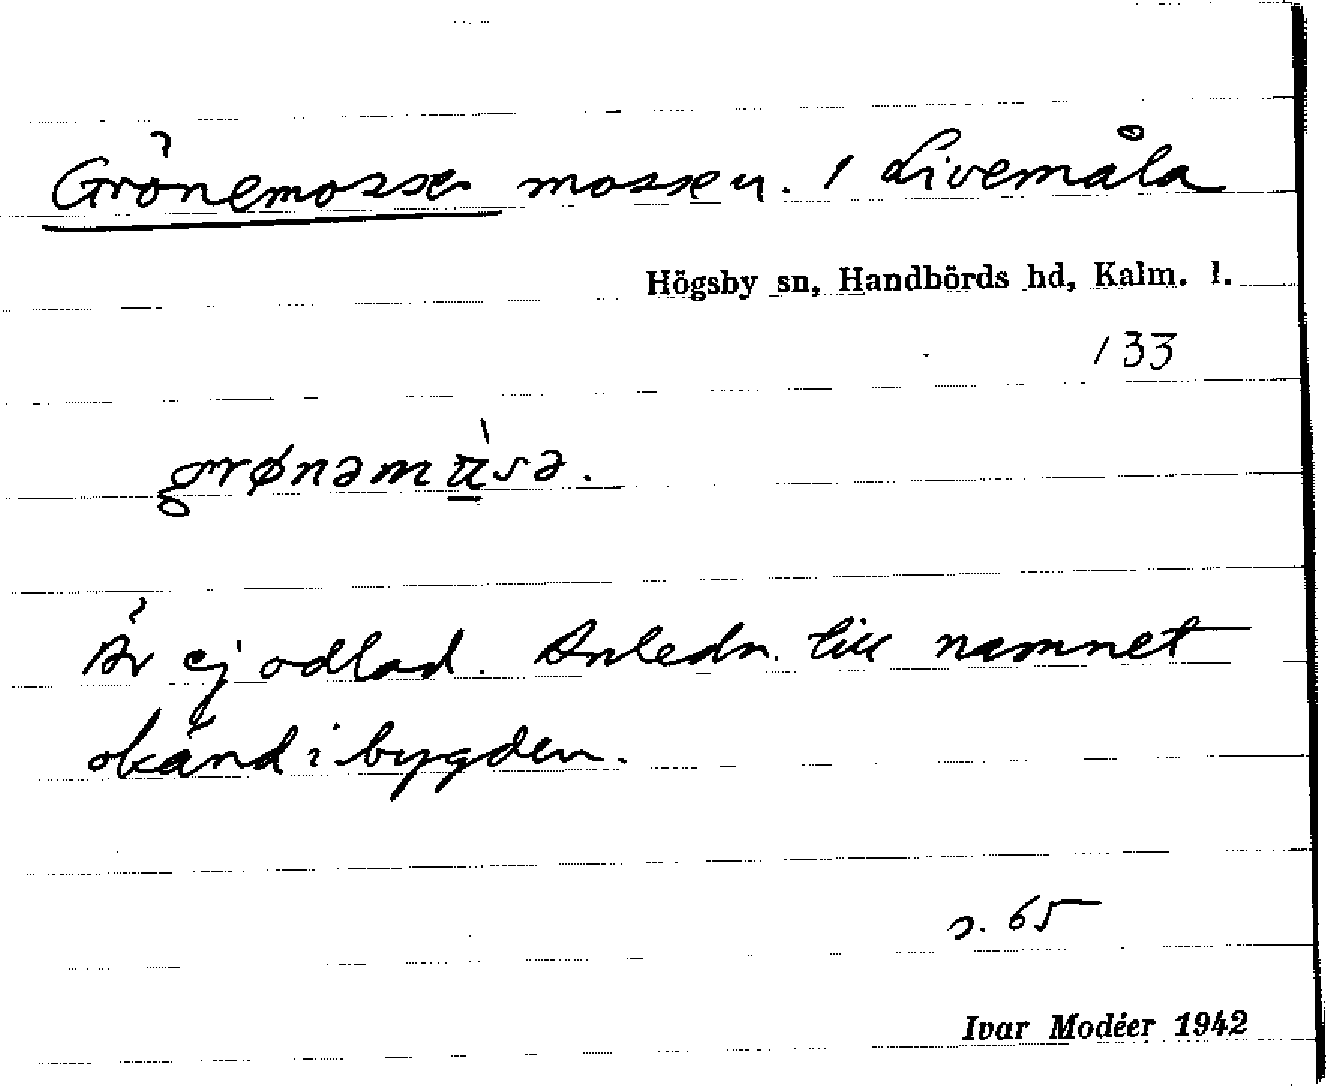 Grönemosse mossen. 1 Livemåla
Högsby sn, Handbörds hd, Kalm. l.
133
grønəmùsə.
Är ej odlad. Anledn. till namnet
okänd i bygden.
s. 65
Ivar Modéer 1942